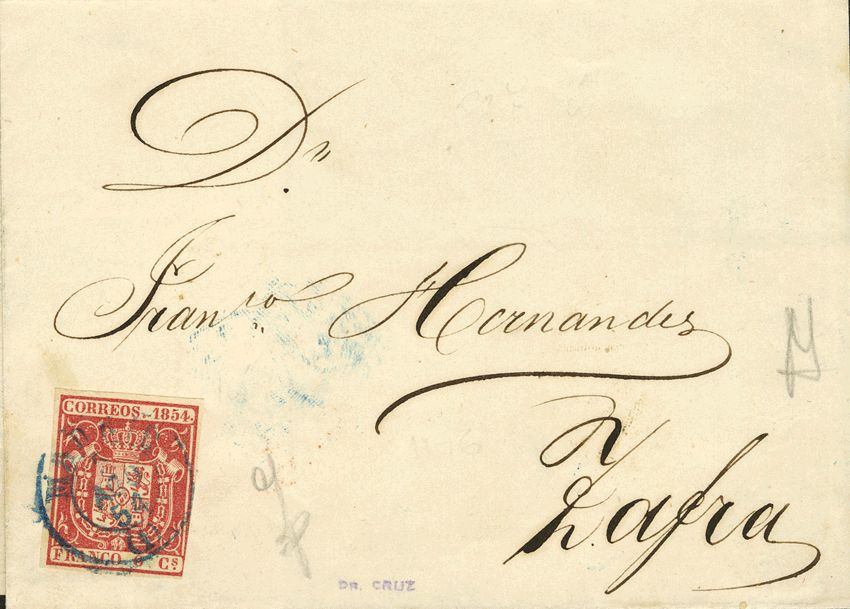 Dn
Franco Hernandez
Zafra
CORREOS. 1854.
FRANCO 6 Cs
DR. CRUZ